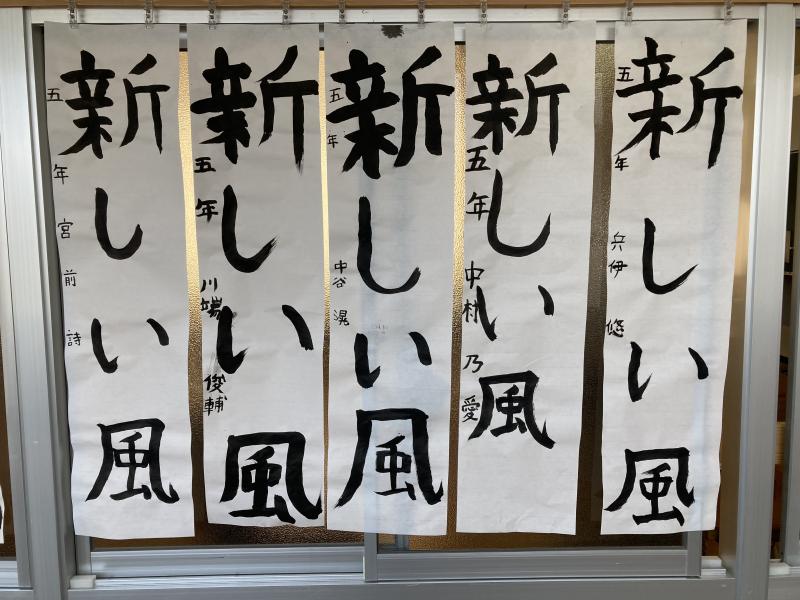 新しい風
五年 兵伊 悠
新しい風
五年 中村 乃愛
新しい風
五年 中谷 滉
新しい風
五年 川端 俊輔
新しい風
五年 宮前 詩